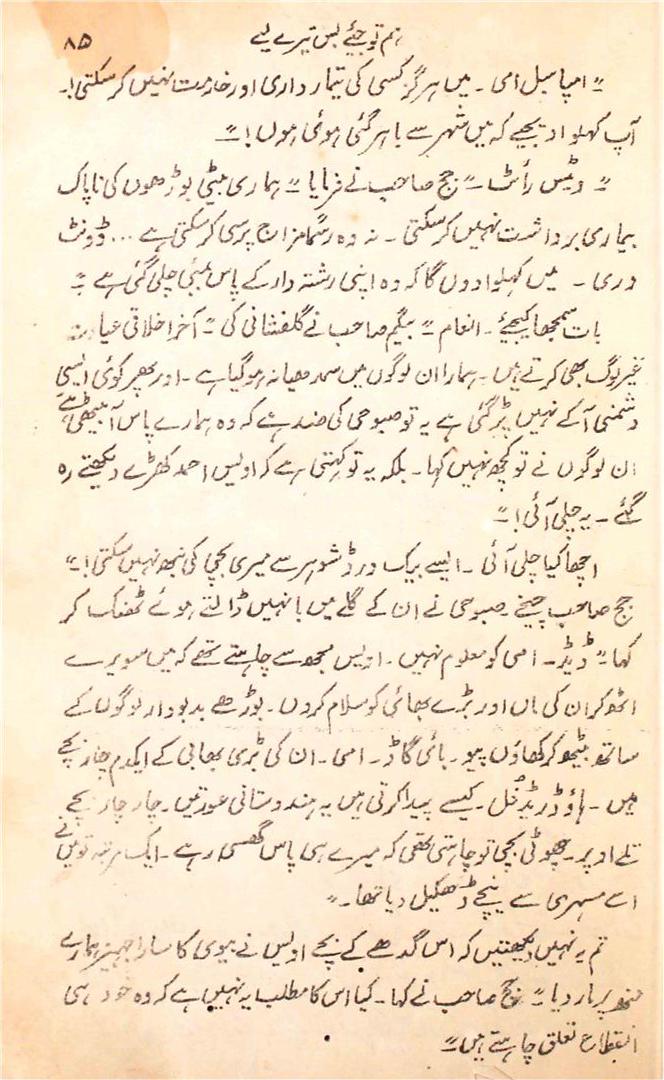 ہم تو جئے بس تیرے لیے
۸۵
"امپاسبل امی۔ میں ہرگز کسی کی تیمارداری اور خدمت نہیں کر سکتی!۔
آپ کہلوا دیجیے کہ میں شہر سے باہر گئی ہوئی ہوں!"
"وٹیس رائٹ" جج صاحب نے فرمایا "ہماری بیٹی بوڑھوں کی ناپاک
بیماری برداشت نہیں کر سکتی۔ نہ وہ رسماً مزاج پرسی کر سکتی ہے ... ڈونٹ
وری۔ میں کہلوا دوں گا کہ وہ اپنی رشتہ دار کے پاس بمبئی چلی گئی ہے"
بات سمجھا کیجیے۔ انعام" بیگم صاحب نے گلفشانی کی "آخر اخلاقی عیادت
غیر لوگ بھی کرتے ہیں۔ ہمارا ان لوگوں میں سمدھیانہ ہو گیا ہے۔ اور پھر کوئی ایسی
دشمنی آکے نہیں پڑ گئی ہے یہ تو صبوحی کی ضد ہے کہ وہ ہمارے پاس آ بیٹھی ہے
ان لوگوں نے تو کچھ نہیں کہا۔ بلکہ یہ تو کہتی ہے کہ اویس احمد کھڑے دیکھتے رہ
گئے۔ یہ چلی آئی!"
اچھا کیا چلی آئی۔ ایسے بیک ورڈ شوہر سے میری بچی کی نبھ نہیں سکتی!"
جج صاحب چیخے۔ صبوحی نے ان کے گلے میں بانہیں ڈالتے ہوئے ٹھنک کر
کہا "ڈیڈ۔ امی کو معلوم نہیں۔ اویس مجھ سے چاہتے تھے کہ میں سویرے
اٹھ کر ان کی ماں اور بڑے بھائی کو سلام کروں۔ بوڑھے بدبودار لوگوں کے
ساتھ بیٹھ کر کھاؤں پیو۔ بائی گاڈ۔ امی۔ ان کی بڑی بھابی کے ایکدم چار بچے
ہیں۔ ہاؤ ڈریڈفُل۔ کیسے پیدا کرتی ہیں یہ ہندوستانی عورتیں۔ چار چار بچے
تلے اوپر۔ چھوٹی بچی تو چاہتی تھی کہ میرے ہی پاس گھسی رہے۔ ایک مرتبہ تو میں نے
اسے مسہری سے نیچے دَھکیل دیا تھا۔"
تم یہ نہیں دیکھتیں کہ اس گدھے کے بچے اویس نے بیوی کا سارا جہیز ہمارے
منھ پر مار دیا" جج صاحب نے کہا۔ کیا اس کا مطلب یہ نہیں ہے کہ وہ خود ہی
انقطاع تعلق چاہتے ہیں"